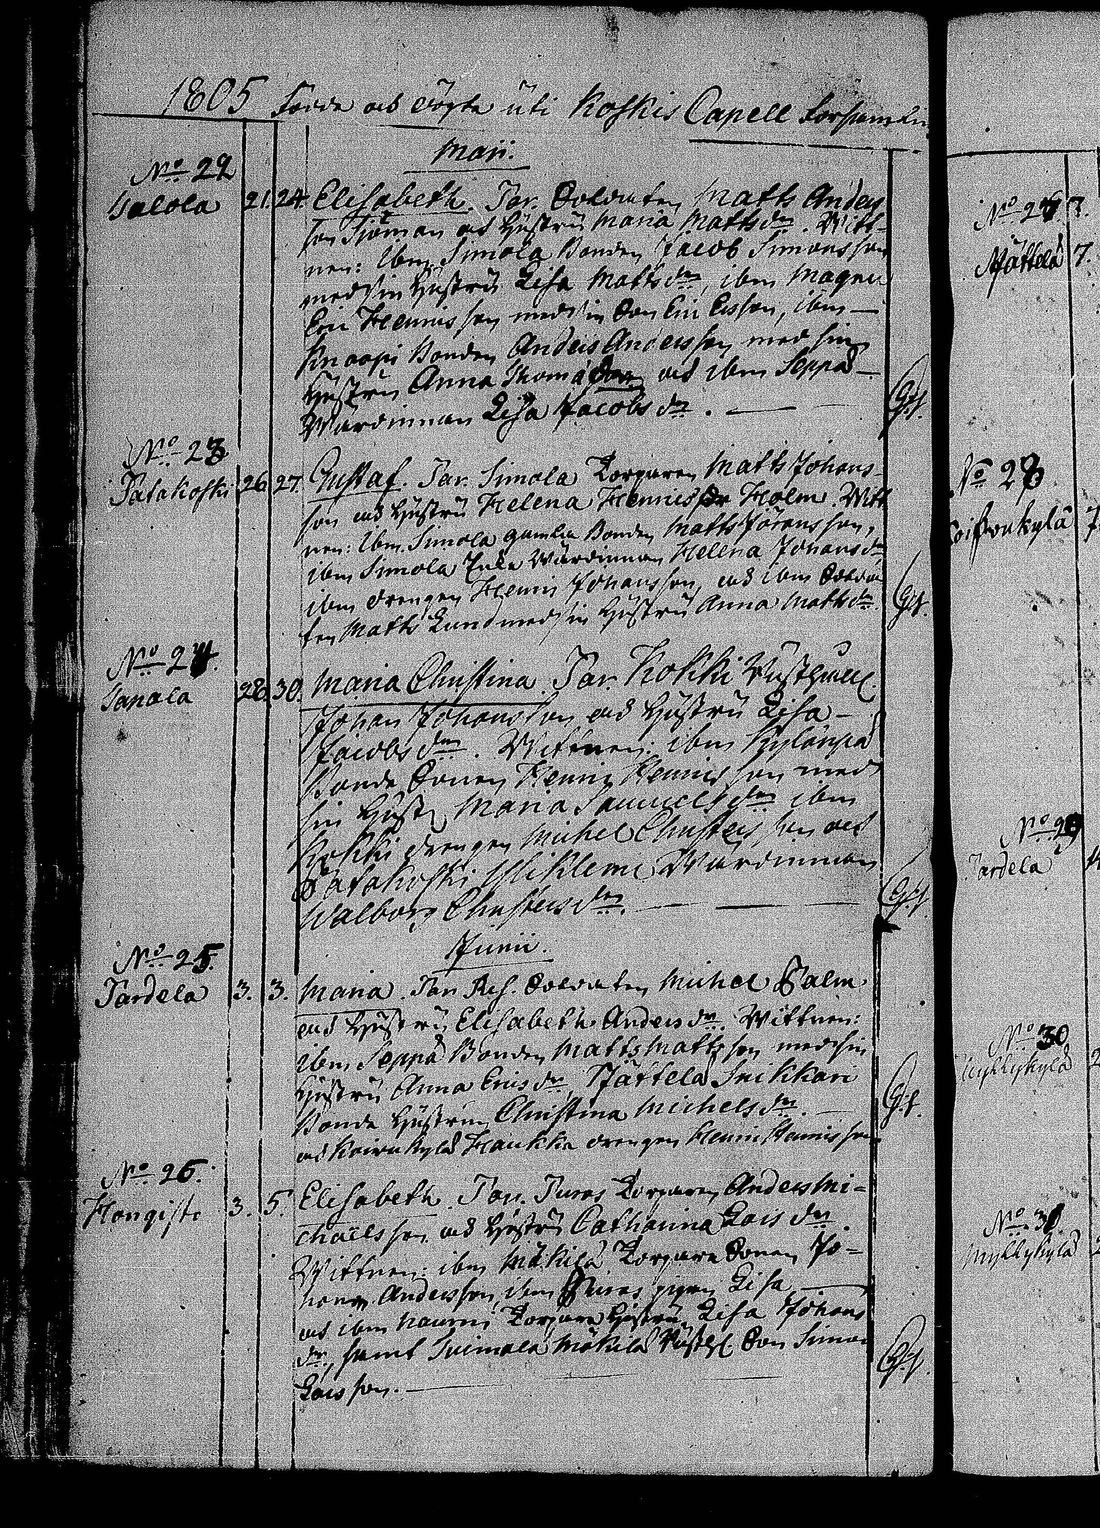 1805 Födde och Döpte uti Koskis Capell Församling
Maji.
No 22
Talola 21. 24. Elisabeth. Par. Soldaten Matts Anders
son Sjöman och Hustru Maria Mattsdr. Witt-
nen: ibm Simola Bonden Jacob Simonsson
med sin Hustru Lisa Mattsdr, ibm
Eric Henricsson med sin Son Eric Ersson, ibm
Knaapi Bonden Anders Andersson med sin
Hustru Anna Thomædr och ibm Seppä
Wärdinnan Lisa Jacobsdr.
No 23
Patakoski 26. 27. Gustaf. Par. Simola Torparen Matts Johans-
son och Hustru Helena Henricsdr Holm. Witt
nen: ibm Simola gamla Bonden Matts Göransson,
ibm Simola Enka Wärdinnan Helena Johansdr
ibm drengen Henric Johansson, och ibm Solda
ten Matts Lund med sin Hustru Anna Mattsdr.
No 24.
Tapala 28. 30. Maria Christina. Par. Kokki
Johan Johansson och Hustru Lisa
Jacobsdr. Wittnen: ibm Kylänpä
Bonde Sonen Henric Henricsson med
sin Hustr Maria Samuelsdr ibm
Kokki drengen Michel Christersson och
Patakoski Wärdinnan
Walborg Christersdr.
Junii.
No 25.
Pardela 3. 3. Maria. Par. Res. Soldaten Michel Palm
och Hustru Elisabeth Andersdr. Wittnen:
ibm Seppä Bonden Matts Mattsson med sin
Hustru Anna Ericsdr Tättelä Snikkari
Bonde Hustrun Christina Michelsdr.
och Koivukylä Haukka drengen Henric Henricsson
No 26.
Hongisto 3. 5. Elisabeth. Par. Puras Torparen Anders Mi-
chaelsson och Hustru Catharina Loisdr.
Wittnen: ibm Mäkilä Torpare Sonen Jo-
han Andersson, ibm Puras pigan Lisa
och ibm Naumi Torpare Hustrun Lisa Johans
dr, samt Suimala Mäkilä Son Simon
Loisson.
No 27.
Tättelä 7.
No 28
Koifvukylä
No 29
Pardela
No 30
Myllykylä
No 31
Myllykylä